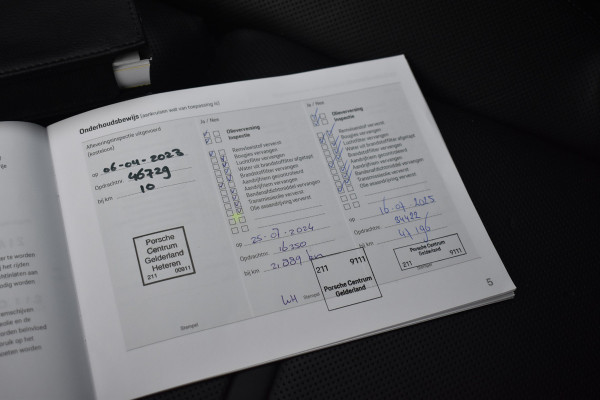 Onderhoudsbewijs (aankruisen wat van toepassing is)
Afleveringsinspectie uitgevoerd
(kosteloos)
op 06-04-2023
Opdrachtnr. 46729
bij km 10
Porsche
Centrum
Gelderland
Heteren
211 00911
Stempel
Ja / Nee
Olieverversing
Inspectie
Remvloeistof ververst
Bougies vervangen
Luchtfilter vervangen
Water uit brandstoffilter afgetapt
Brandstoffilter vervangen
Aandrijfriem gecontroleerd
Aandrijfriem vervangen
Bandenafdichtmiddel vervangen
Transmissieolie ververst
Olie asaandrijving ververst
op 25-07-2024
Opdrachtnr. 16250
bij km
Stempel
211 9111
Porsche Centrum
Gelderland
Ja / Nee
Olieverversing
Inspectie
Remvloeistof ververst
Bougies vervangen
Luchtfilter vervangen
Water uit brandstoffilter afgetapt
Brandstoffilter vervangen
Aandrijfriem gecontroleerd
Aandrijfriem vervangen
Bandenafdichtmiddel vervangen
Transmissieolie ververst
Olie asaandrijving ververst
op 16-07-2025
Opdrachtnr.
bij km
Porsche Centrum
Gelderland
211 9111
Stempel
5